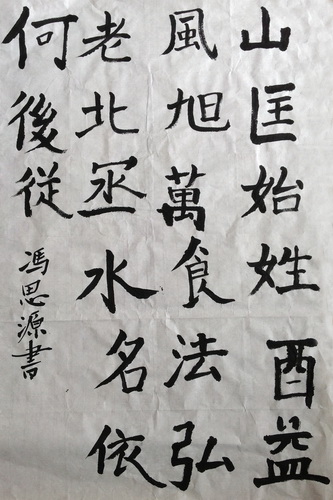 山匡始姓酉益
風旭萬食法弘
老北丞水名依
何後從
馮思源書